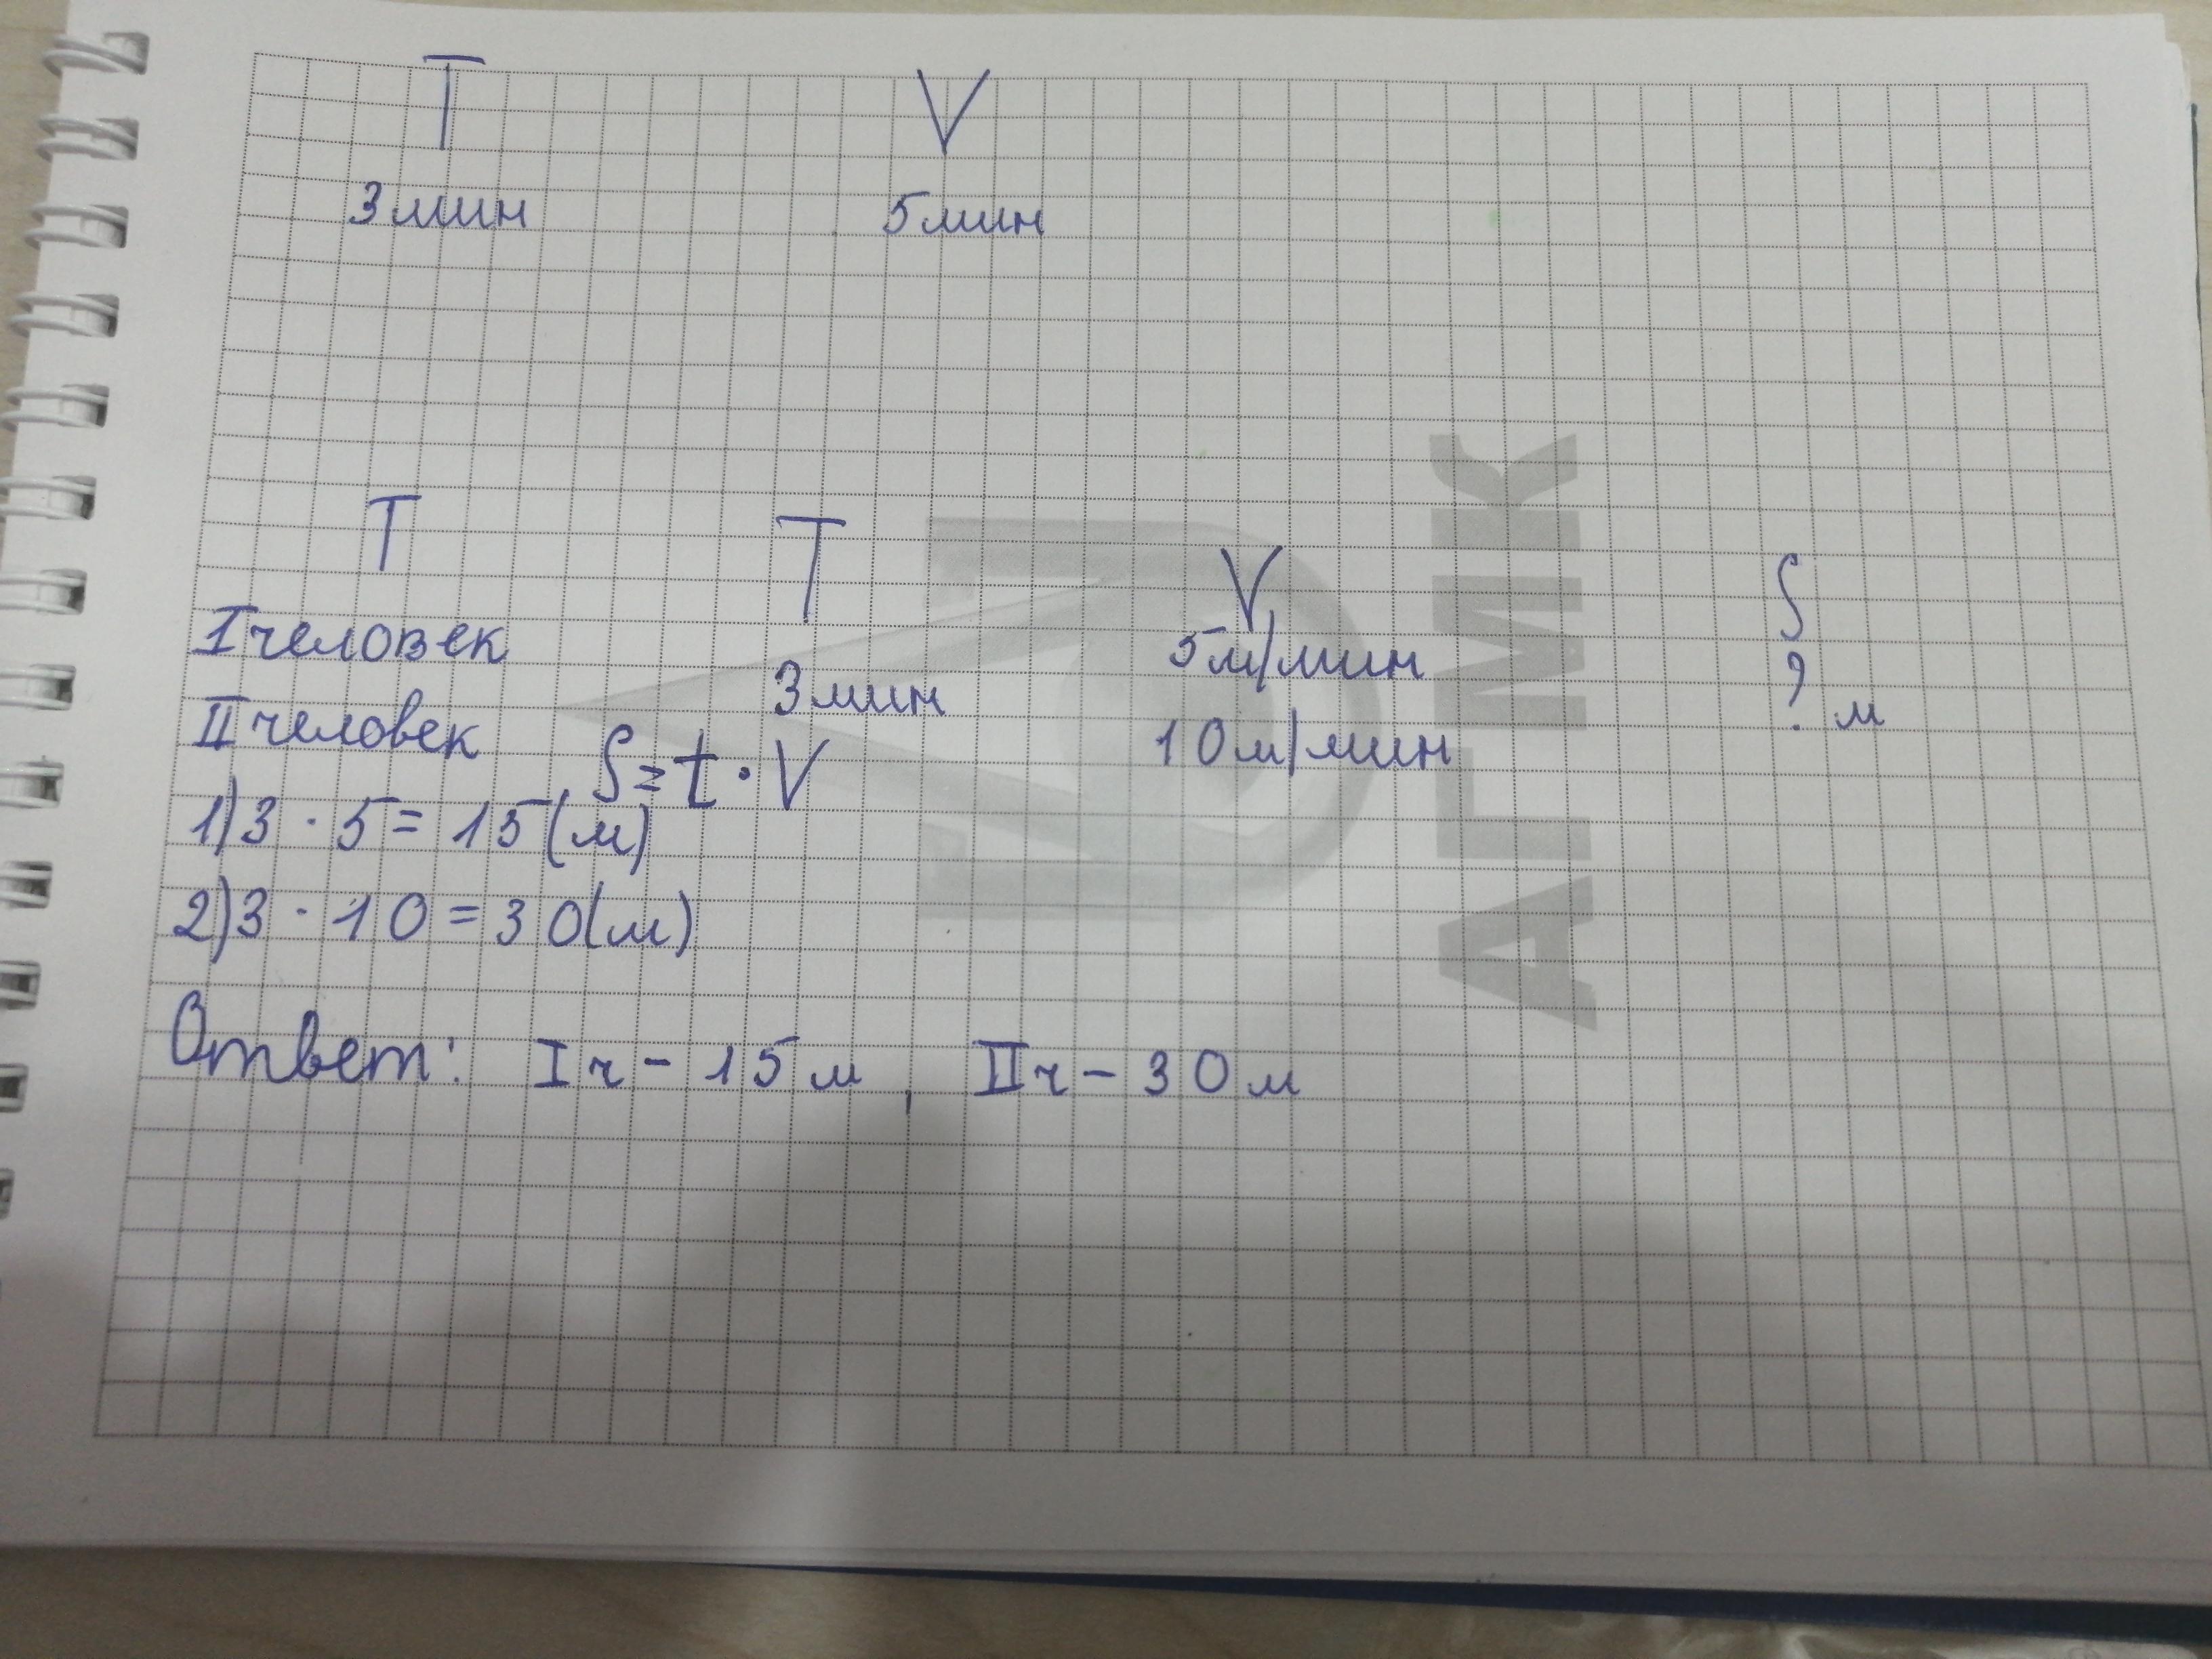 T V
3 мин 5 мин
T T V S
I человек 5 м/мин ?
3 мин м
II человек 10 м/мин
S = t · V
1) 3 · 5 = 15 (м)
2) 3 · 10 = 30 (м)
Ответ: I ч - 15 м , II ч - 30 м
АГМК